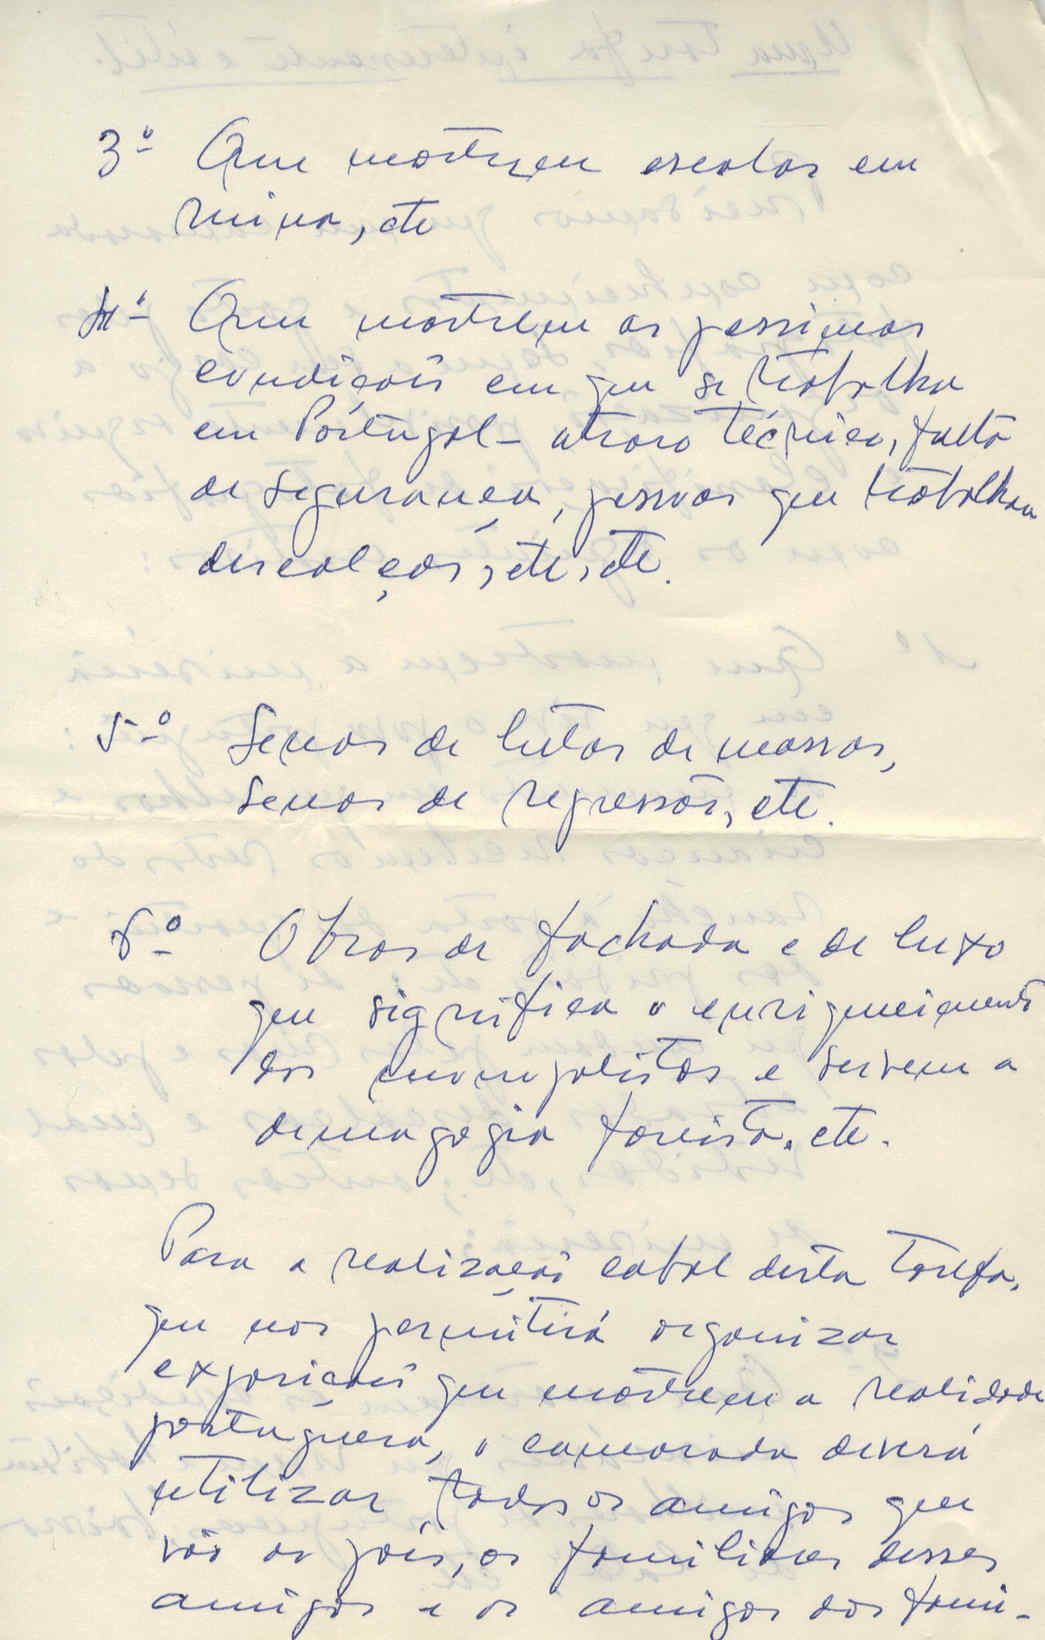 3º Que mostrem escolas em
ruina, etc
4º- Que mostrem as pessimas
condições em que se trabalha
em Portugal - atraso técnico, falta
de segurança, pessoas que trabalham
descalças, etc, etc.
5º Senas de lutas de massas,
senas de repressão, etc.
6º Obras de fachada e de luxo
que significa o enriquecimento
dos monopolistas e servem a
demagogia fascista, etc.
Para a realização cabal desta tarefa,
que nos permitirá organizar
exposições que mostrem a realidade
portuguesa, o camarada deverá
utilizar todos os amigos que
vão ao país, os familiares desses
amigos e os amigos dos fami-